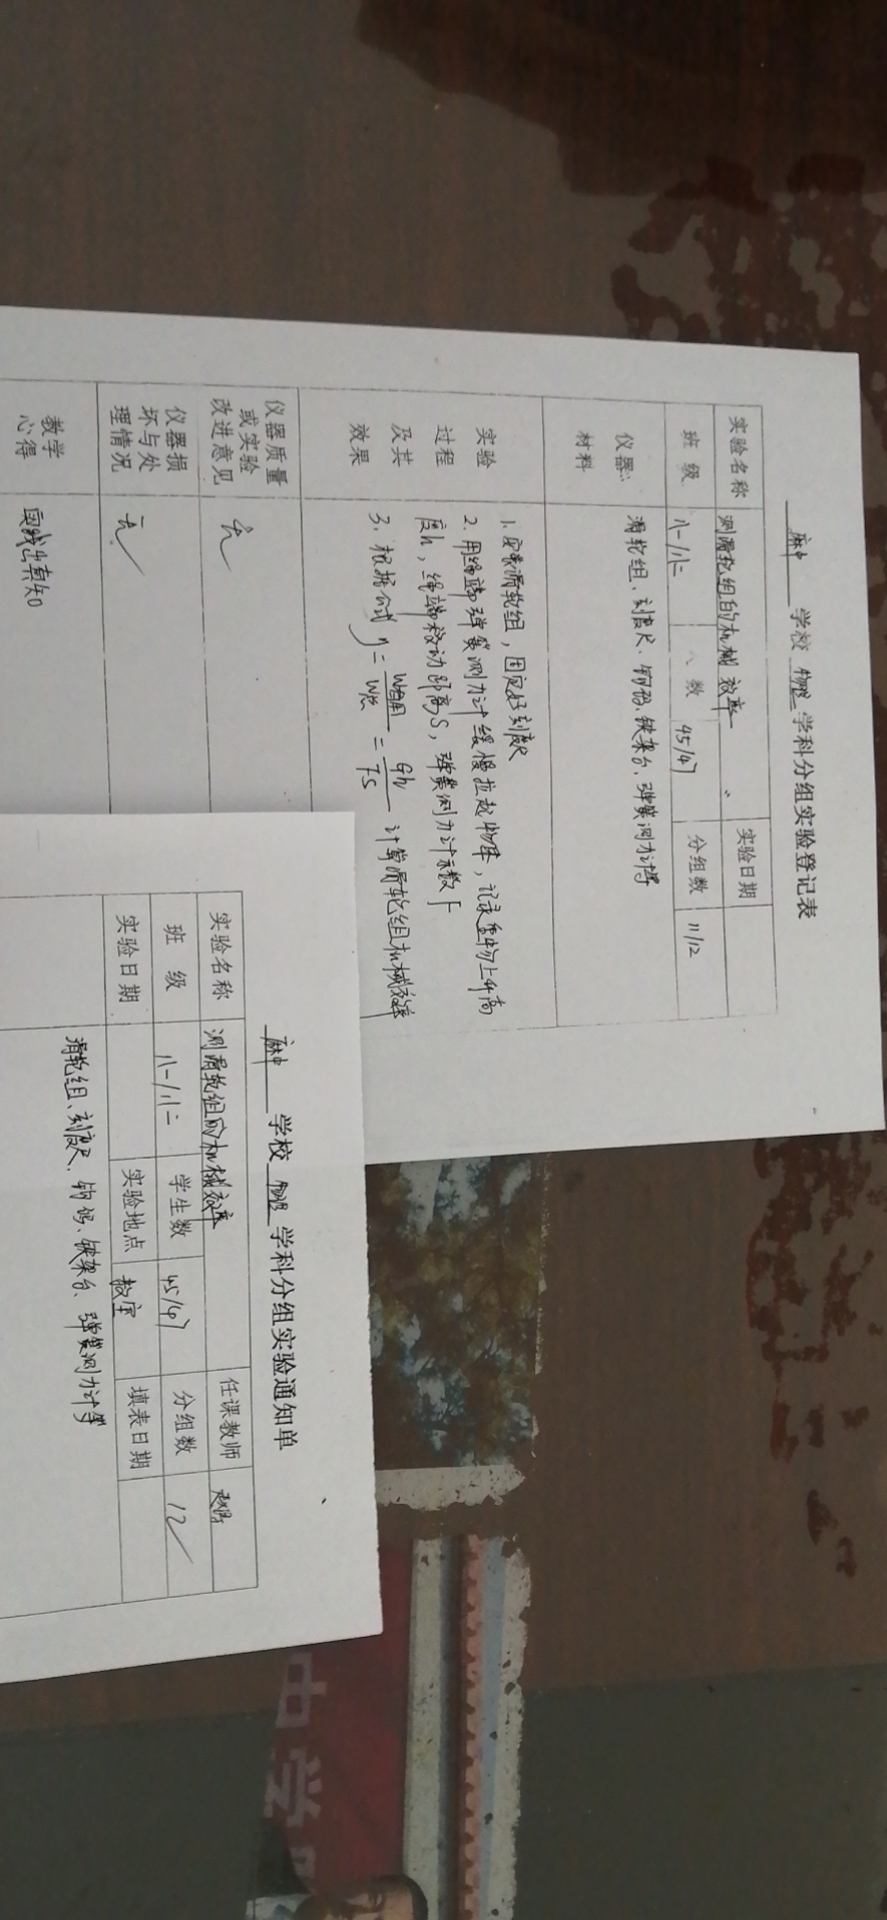 麻中 学校 物理 学科分组实验登记表
实验名称 测滑轮组的机械效率 实验日期
班 级 八一/八二 人数 45/47 分组数 11/12
仪器 材料 滑轮组、刻度尺、钩码、铁架台、弹簧测力计等
实验过程及其效果
1. 安装滑轮组，固定好刻度尺
2. 用绳端弹簧测力计缓慢拉起物体，记录重物上升高
度h，绳端移动距离S，弹簧测力计示数F
3. 根据公式 η = W有用/W总 = Gh/FS 计算滑轮组机械效率
仪器质量或实验改进意见 无
仪器损坏与处理情况 无
教学心得 实践出真知
麻中 学校 物理 学科分组实验通知单
实验名称 测滑轮组的机械效率 任课教师
班 级 八一/八二 学生数 45/47 分组数 12
实验日期 实验地点 教室 填表日期
滑轮组、刻度尺、钩码、铁架台、弹簧测力计等
中学